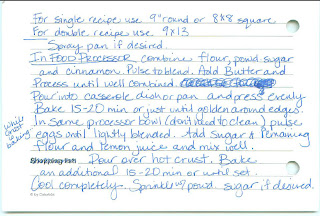 For single recipe use 9" round or 8x8 square
For double recipe use 9x13
Spray pan if desired.
In FOOD PROCESSOR combine flour, powd sugar
and cinnamon. Pulse to blend. Add Butter and
Process until well combined.
Pour into casserole dish or pan and press evenly
Bake 15-20 min or just until golden around edges.
while crust is baking
In same processor bowl (don't need to clean) pulse
eggs until lightly blended. Add sugar & remaining
flour and lemon juice and mix well.
Pour over hot crust. Bake
an additional 15-20 min or until set.
Cool completely. Sprinkle w/ powd. sugar if desired.